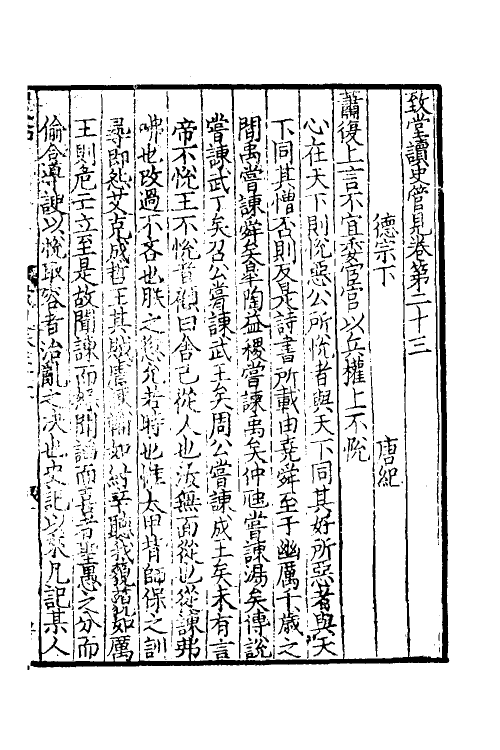 致堂讀史管見卷第二十三
德宗下 唐紀
蕭復上言不宜委宦官以兵權上不悅
心在天下則悅惡公所悅者與天下同其好所惡者與天
下同其憎否則反是詩書所載由堯舜至于幽厲千歲之
間禹嘗諫舜矣臯陶益稷嘗諫禹矣仲虺嘗諫湯矣傅說
嘗諫武丁矣召公嘗諫武王矣周公嘗諫成王矣未有言
帝不悅王不悅者顧曰舍己從人也汝無面從也從諫弗
咈也改過不吝也朕之愆允若時也惟太甲背師保之訓
尋即怨艾克成哲王其餘
如紂
聽我藐藐如厲
王則危亡立至是故聞諫而
聞諂而喜者聖愚之分而
偷合導諛以悅取容者治亂之決也史記以來凡記某人